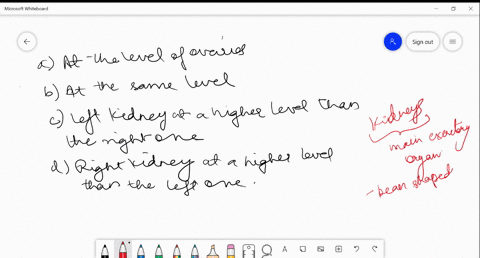 Microsoft Whiteboard
Sign out
a) At the level of ovaries
b) At the same level
c) Left kidney at a higher level than
the right one
d) Right kidney at a higher level
than the left one.
Kidneys
main excretory
organ
- bean shaped